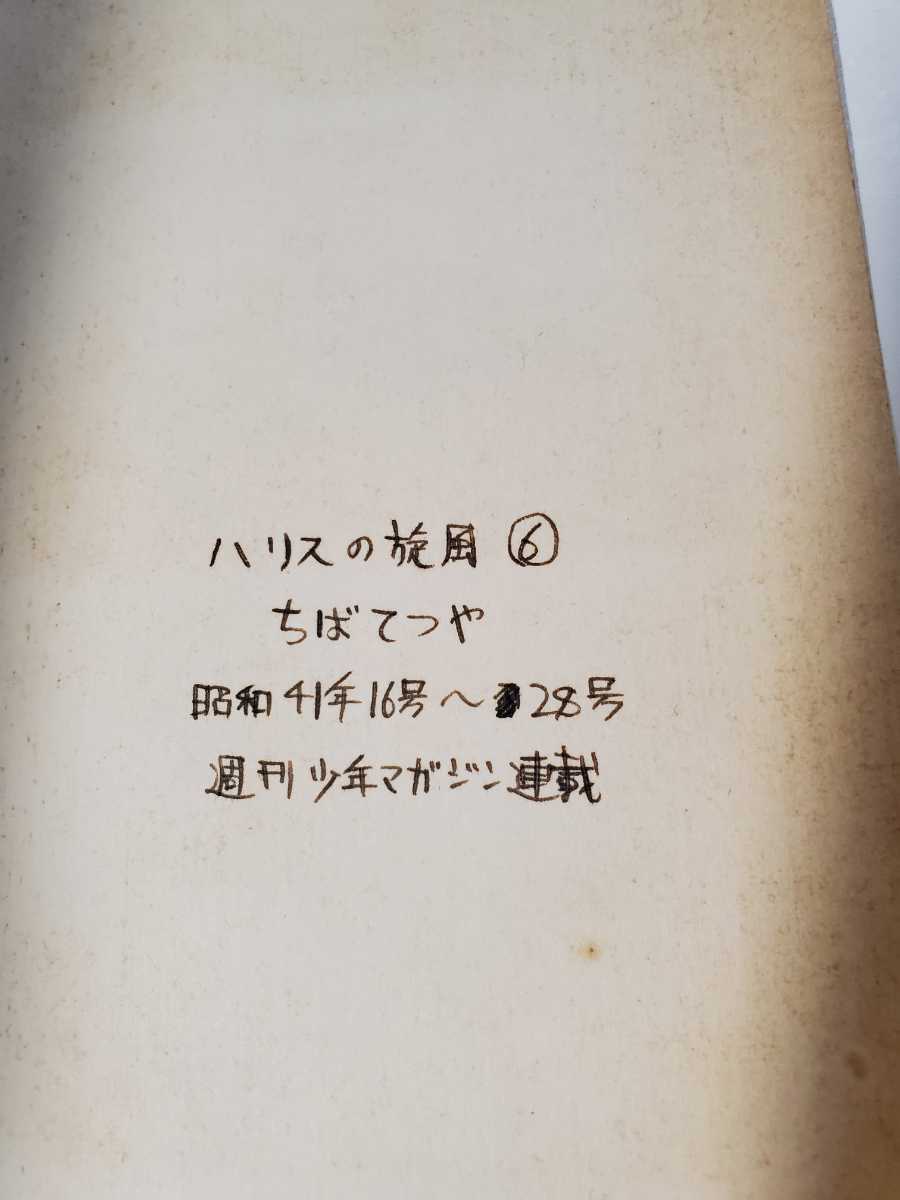 ハリスの旋風 ⑥
ちばてつや
昭和41年16号〜28号
週刊少年マガジン連載